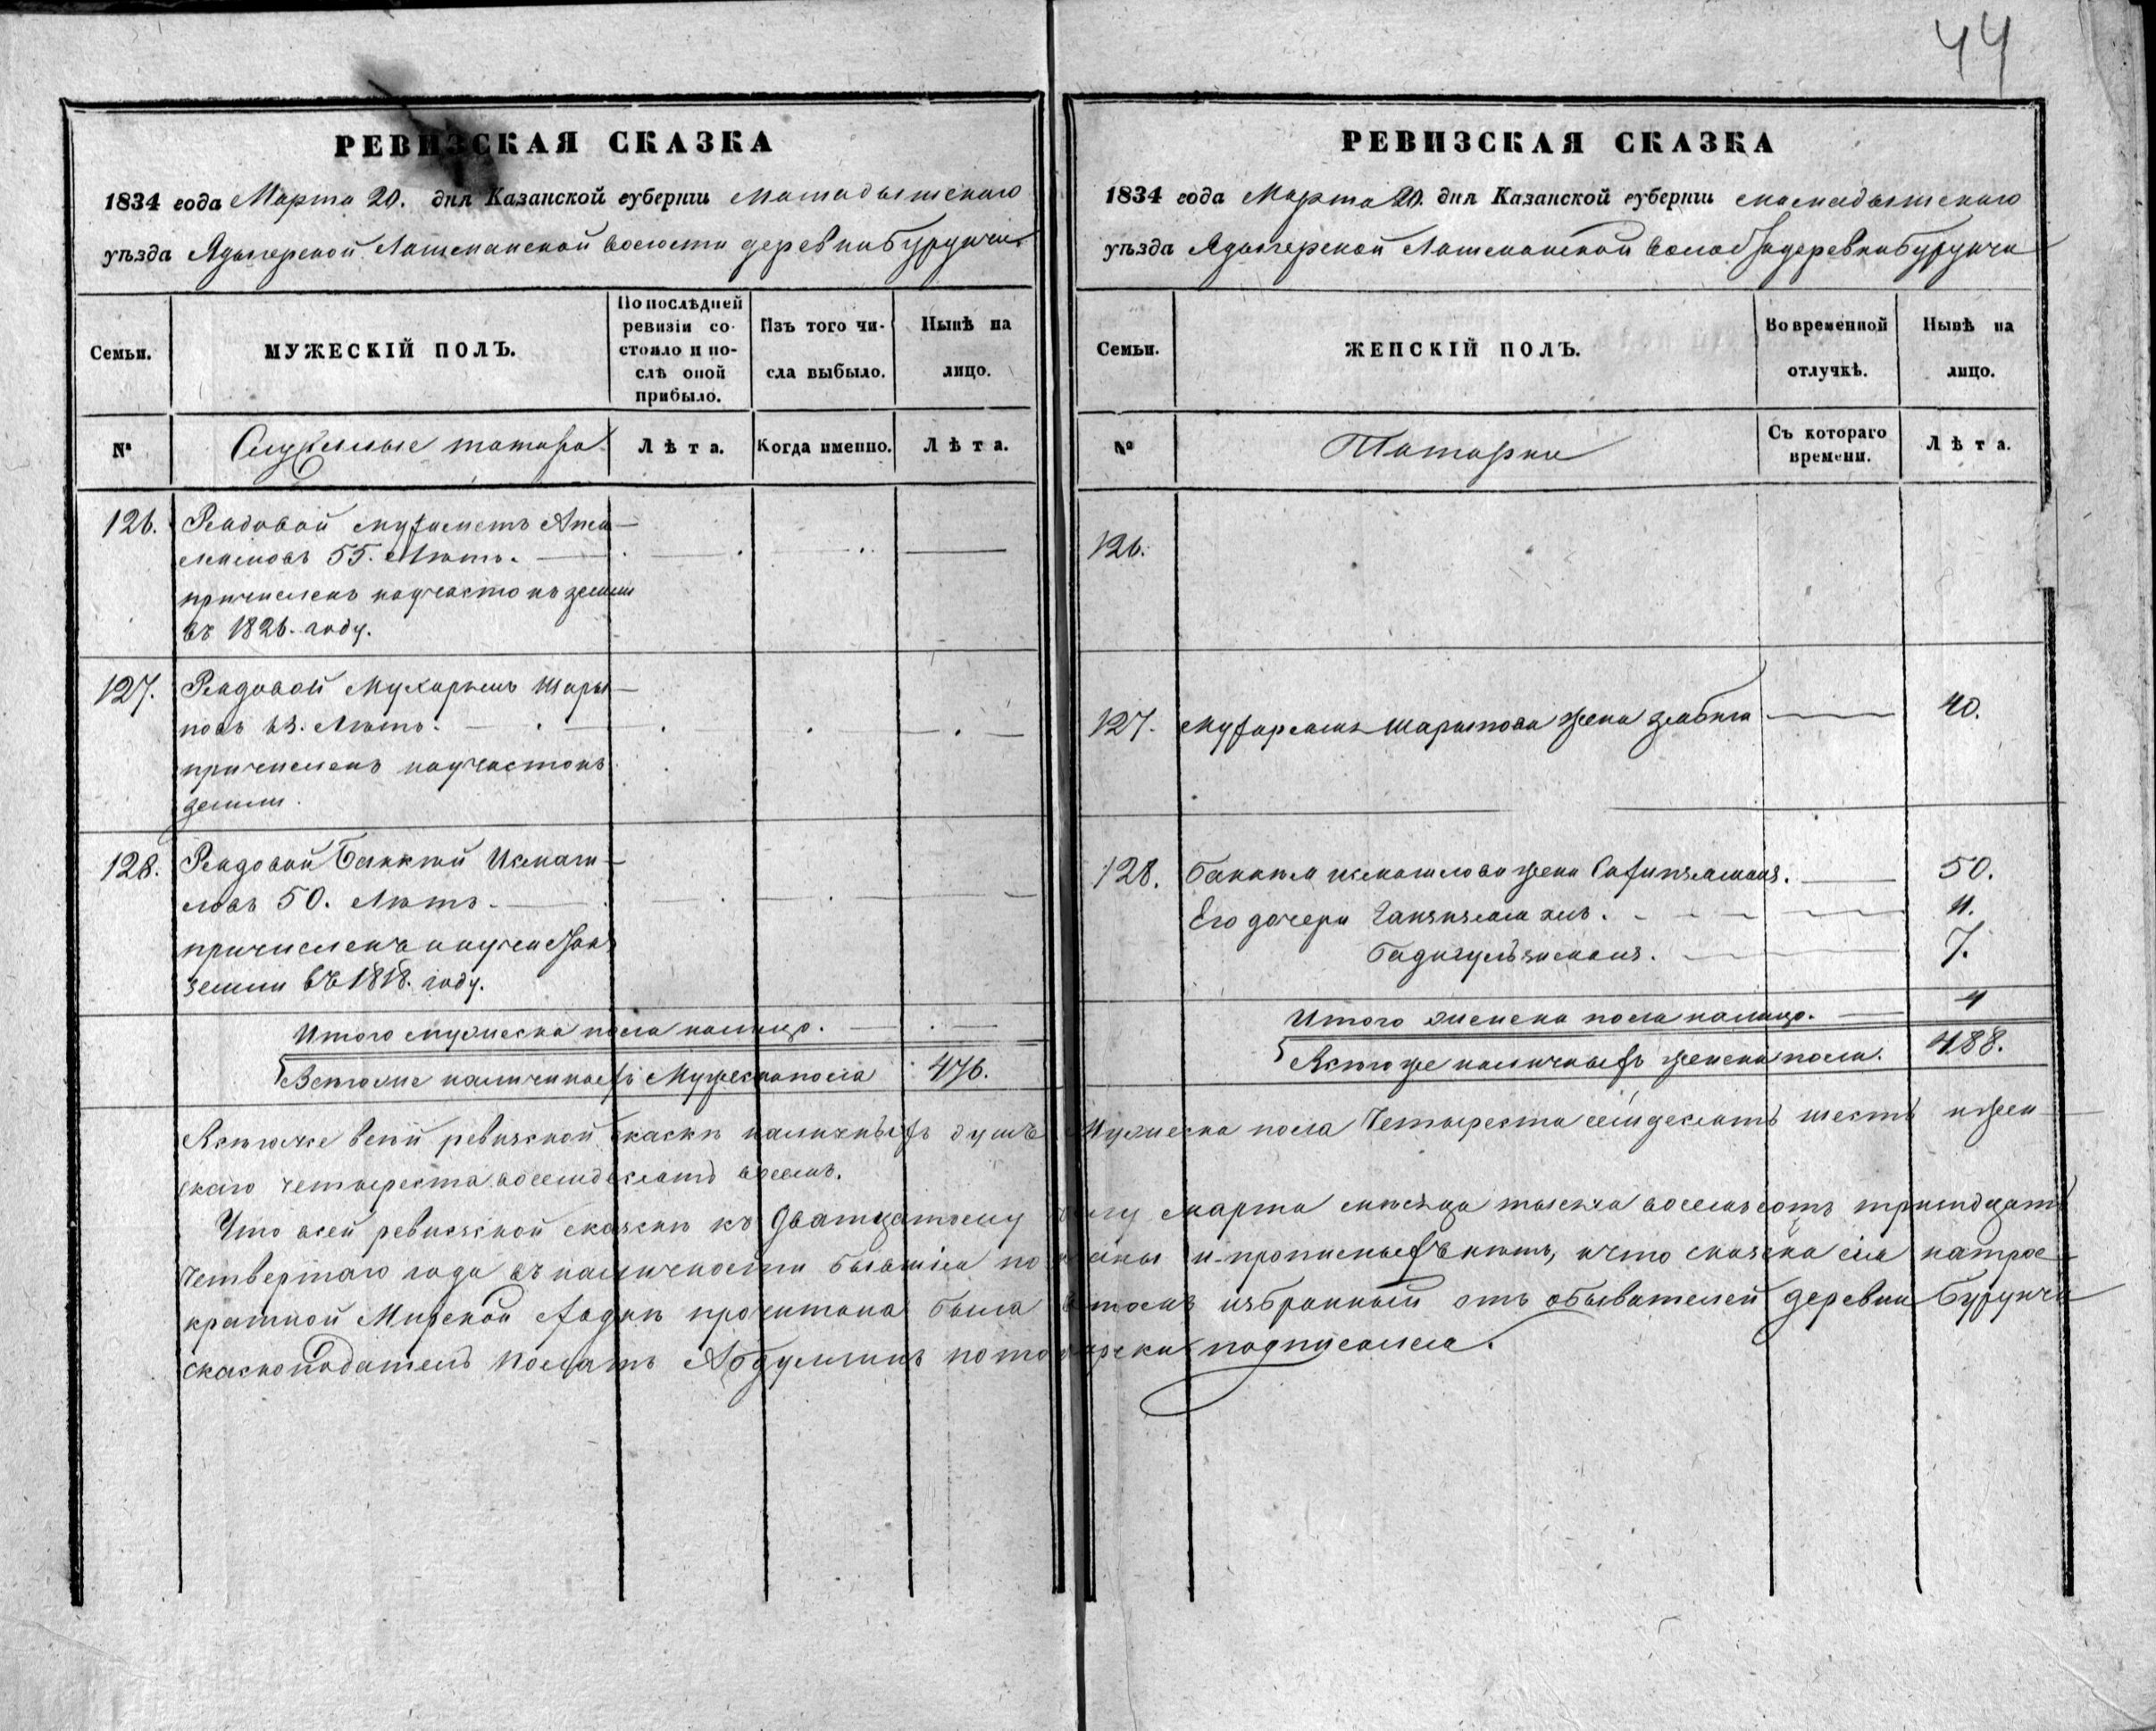 44
РЕВИЗСКАЯ СКАЗКА
1834 года Марта 20. дня Казанской губернiи Мамадышскаго
уѣзда Адаперской Лашманской волости деревни Бурунчи
Семьи.
МУЖЕСКIЙ ПОЛЪ.
По послѣдней
ревизiи со-
стояло и по-
слѣ оной
прибыло.
Изъ того чи-
сла выбыло.
Нынѣ на
лицо.
№
Служилые татара
Лѣта.
Когда именно.
Лѣта.
126. Рядовой
55. Лѣтъ.
причисленъ на участокъ земли
въ 1826. году.
127. Рядовой Мухарямъ Шары-
повъ 63. Лѣтъ.
причисленъ на участокъ
земли.
128. Рядовой Баккѣй Исмаи-
ловъ 50. Лѣтъ.
причисленъ на участокъ
земли въ 1818. году.
Итого мужеска пола налицо.
Всего же наличныхъ Мужеска пола 476.
РЕВИЗСКАЯ СКАЗКА
1834 года Марта 20. дня Казанской губернiи Мамадышскаго
уѣзда Адаперской Лашманской волости деревни Бурунчи
Семьи.
ЖЕНСКIЙ ПОЛЪ.
Во временной
отлучкѣ.
Нынѣ на
лицо.
№
Татарки
Съ котораго
времени.
Лѣта.
126.
127. Шарыпова жена Зябига 40.
128. Баккѣя Исмаилова жена 50.
Его дочери 11.
Бадигульзямалъ. 7.
Итого женска пола налицо. 4
Всего же наличныхъ женска пола. 488.
Всего же в сей ревизской скаскѣ наличныхъ душъ Мужеска пола Четыреста семдесятъ шесть и жен-
скаго четыреста восемдесятъ восемъ.
Что всей ревизской сказки къ Дватцатому числу марта мѣсяца тысяча восемьсотъ тритцать
Четвертаго года въ наличности бывшiя и прописныхъ нѣтъ, и что сказка сiя натрое
кратной Мирской сходкѣ прочитана была въ томъ избранный отъ обывателей деревни Бурунчи
скаскоподатель Абдуллинъ по татарски подписался.